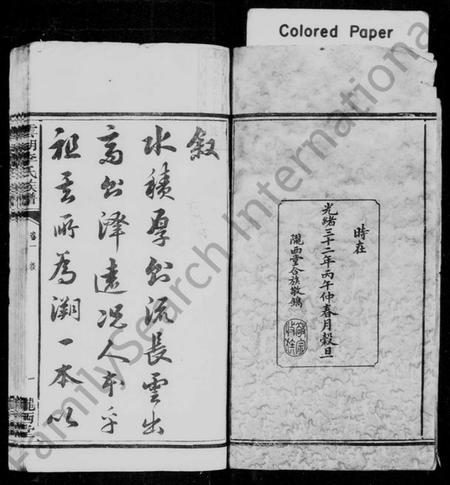 Colored Paper
時在
光緒三十二年丙午仲春月穀旦
隴西堂合族敬鐫
敘
水積厚則流長雲出
高則澤遠況人本乎
祖其所為溯一本以
李氏族譜
隴西堂
FamilySearch International